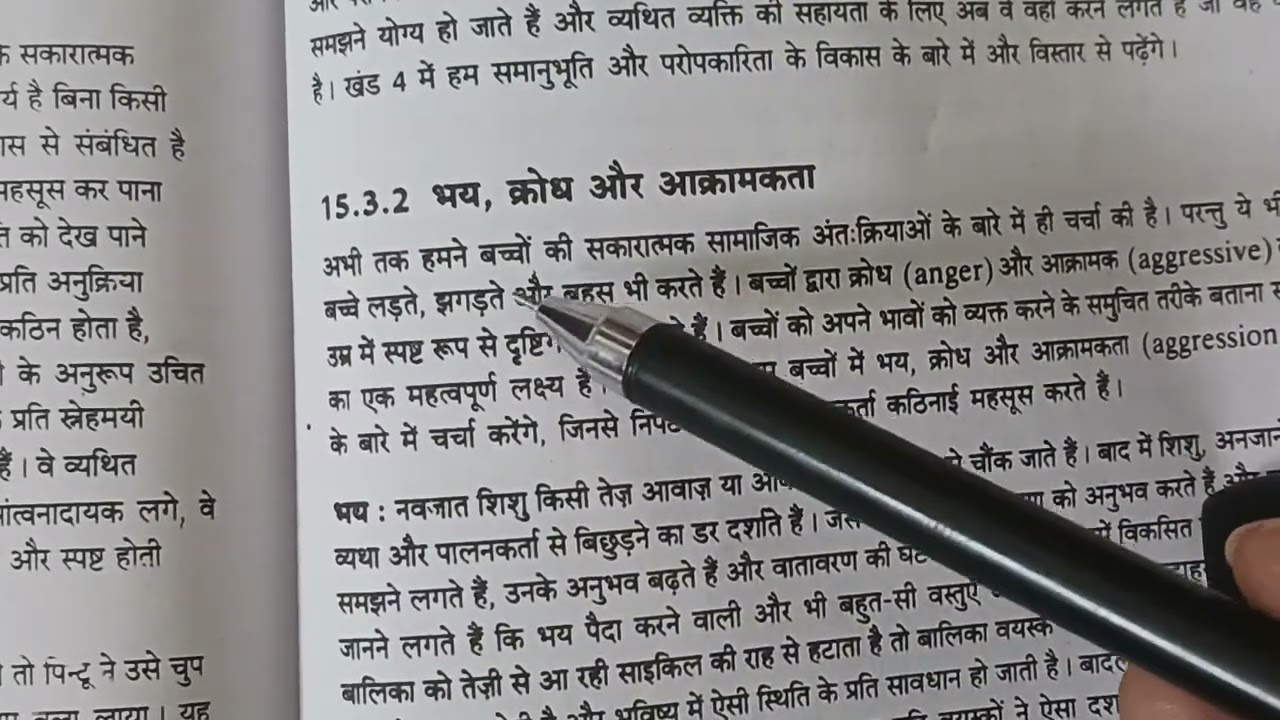 क सकारात्मक
र्य है बिना किसी
ास से संबंधित है
महसूस कर पाना
को देख पाने
प्रति अनुक्रिया
कठिन होता है,
के अनुरूप उचित
प्रति स्नेहमयी
हैं। वे व्यथित
सांत्वनादायक लगे, वे
और स्पष्ट होती
तो पिन्टू ने उसे चुप
बुला लाया। यह
समझने योग्य हो जाते हैं और व्यथित व्यक्ति की सहायता के लिए अब वे वही करने लगते हैं जो वह
है। खंड 4 में हम समानुभूति और परोपकारिता के विकास के बारे में और विस्तार से पढ़ेंगे।
15.3.2 भय, क्रोध और आक्रामकता
अभी तक हमने बच्चों की सकारात्मक सामाजिक अंतःक्रियाओं के बारे में ही चर्चा की है। परन्तु ये भी
बच्चे लड़ते, झगड़ते और बहस भी करते हैं। बच्चों द्वारा क्रोध (anger) और आक्रामक (aggressive)
उम्र में स्पष्ट रूप से हैं। बच्चों को अपने भावों को व्यक्त करने के समुचित तरीके बताना
का एक महत्वपूर्ण लक्ष्य है। बच्चों में भय, क्रोध और आक्रामकता (aggression
के बारे में चर्चा करेंगे, जिनसे कठिनाई महसूस करते हैं।
भय : नवजात शिशु किसी तेज़ आवाज़ या चौंक जाते हैं। बाद में शिशु,
व्यथा और पालनकर्ता से बिछुड़ने का डर दर्शाते हैं। को अनुभव करते हैं और
समझने लगते हैं, उनके अनुभव बढ़ते हैं और वातावरण की विकसित
जानने लगते हैं कि भय पैदा करने वाली और भी बहुत-सी वस्तुएँ
बालिका को तेज़ी से आ रही साइकिल की राह से हटाता है तो बालिका वयस्क
और भविष्य में ऐसी स्थिति के प्रति सावधान हो जाती है।
वयस्कों ने ऐसा